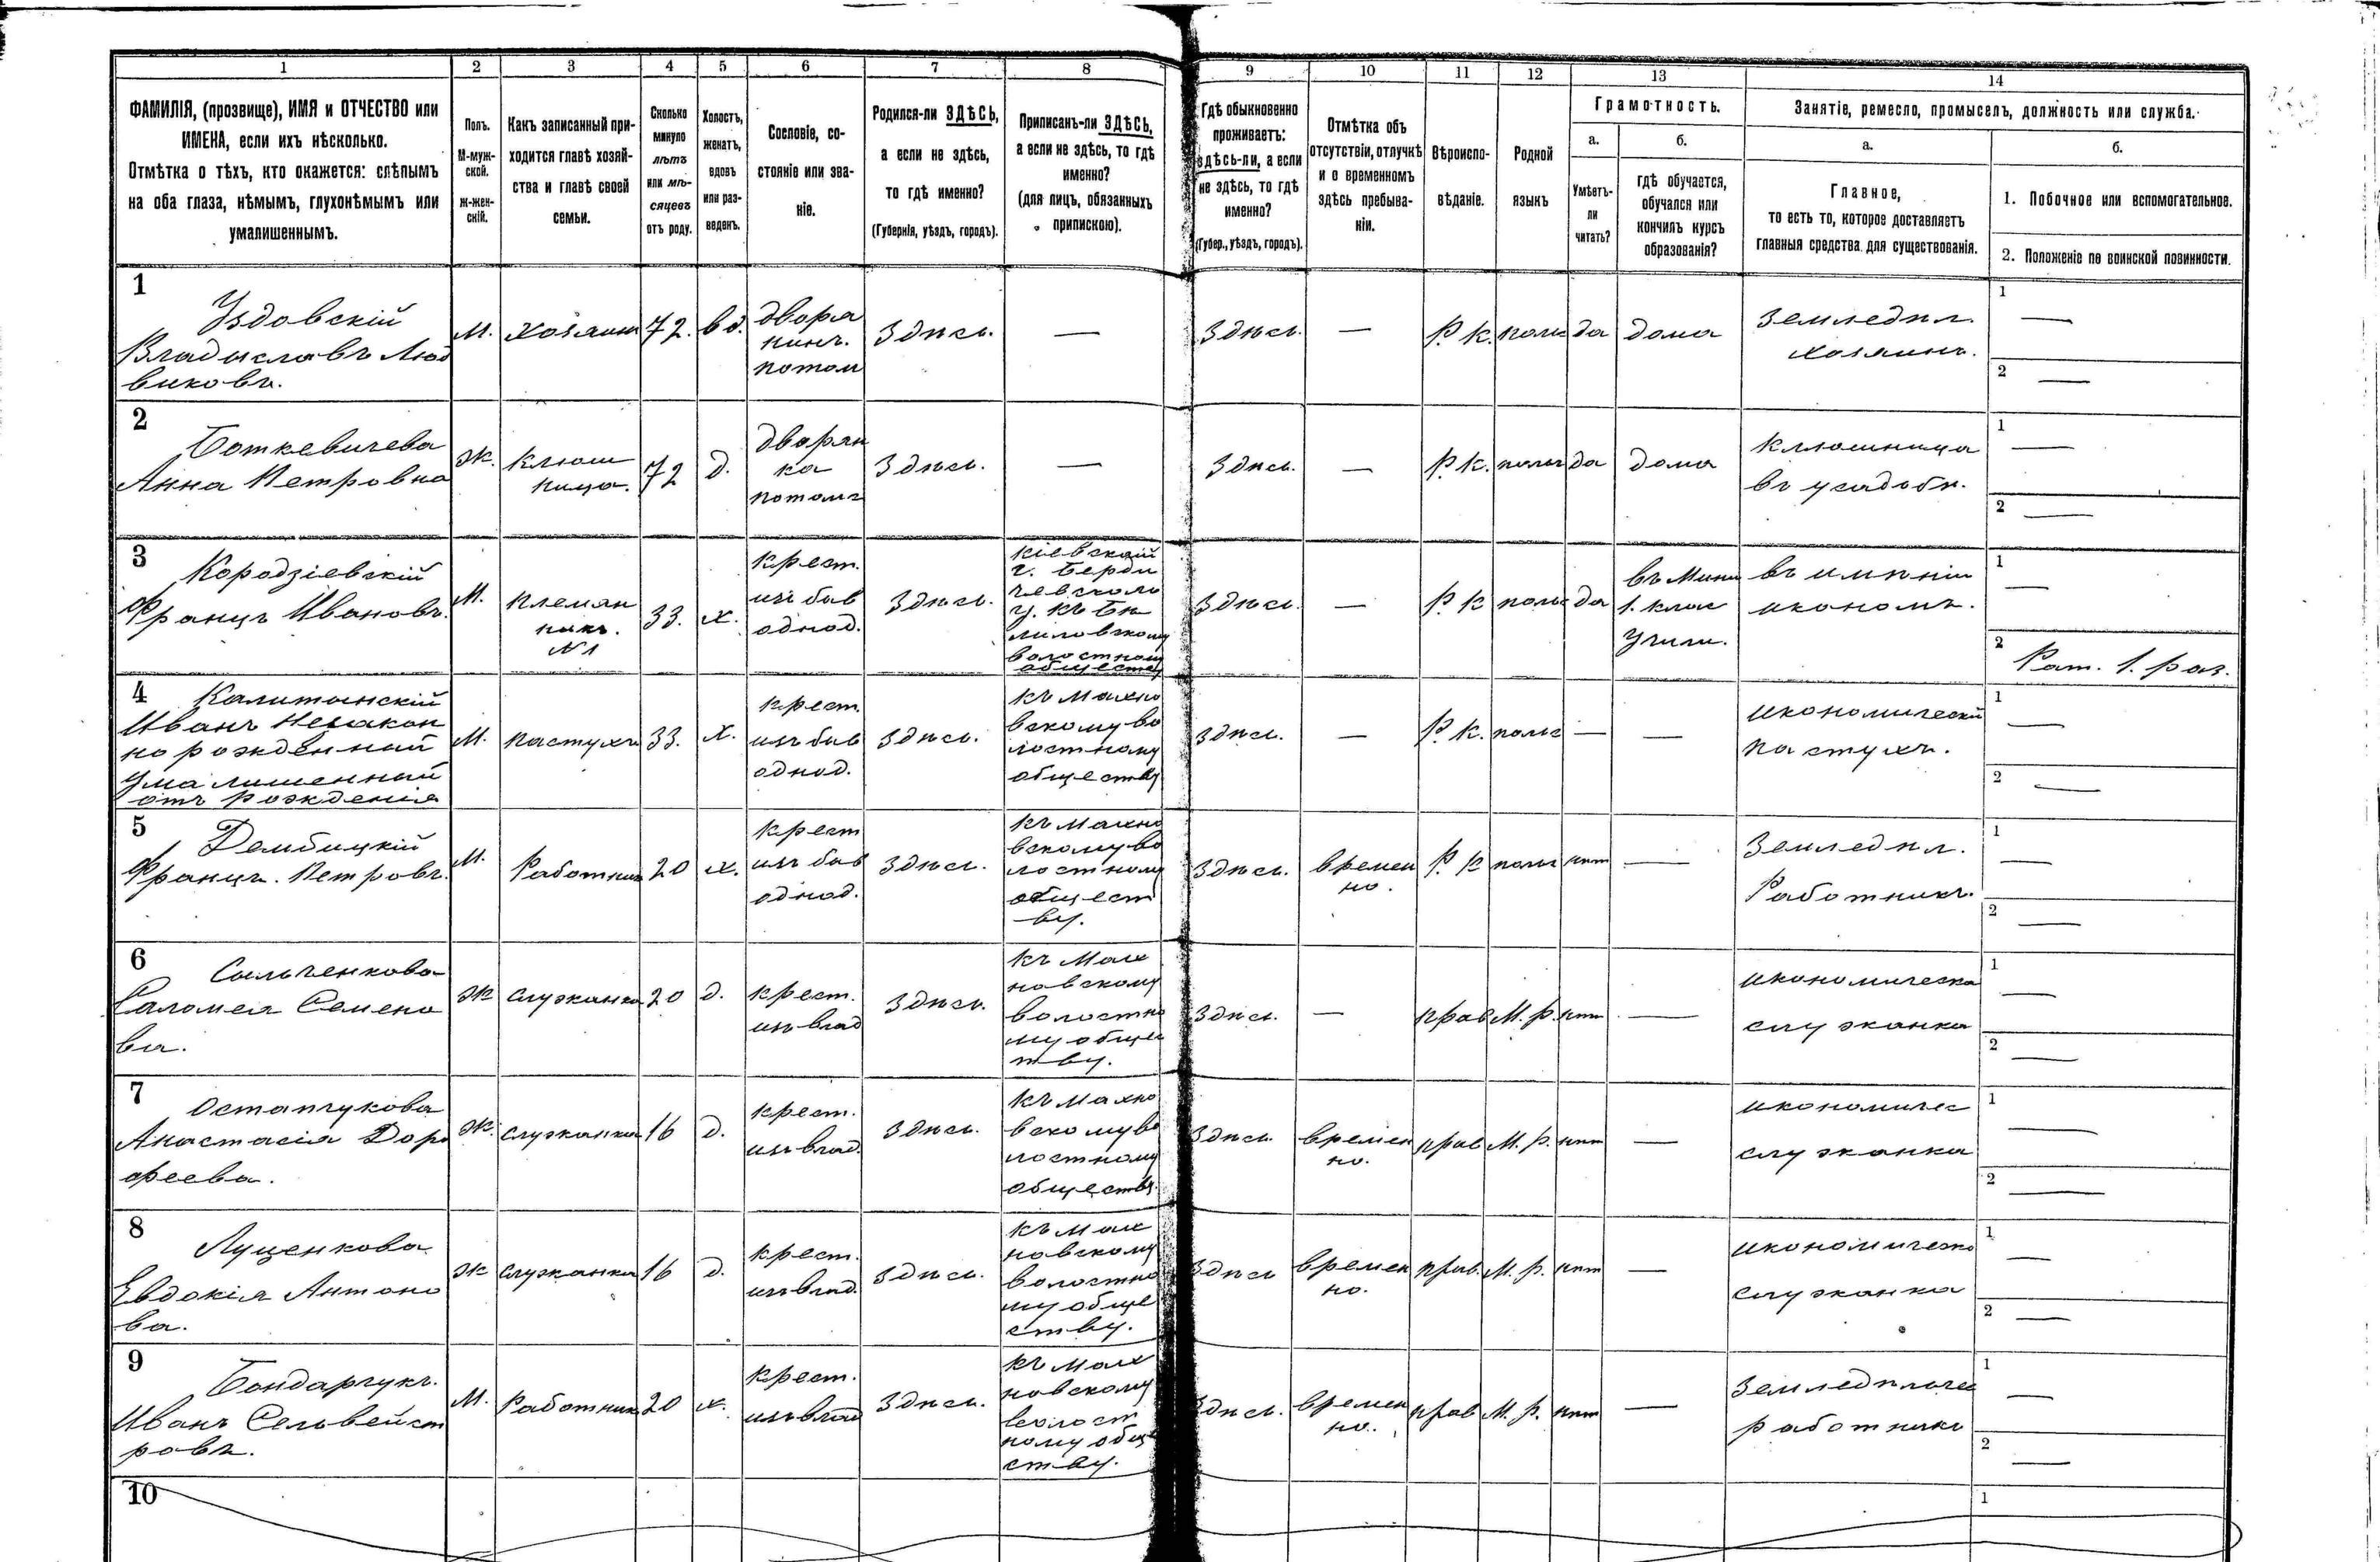 1 2 3 4 5 6 7 8 9 10 11 12 13 14
ФАМИЛІЯ, (прозвище), ИМЯ и ОТЧЕСТВО или
ИМЕНА, если ихъ нѣсколько.
Отмѣтка о тѣхъ, кто окажется: слѣпымъ
на оба глаза, нѣмымъ, глухонѣмымъ или
умалишеннымъ.
Полъ.
М-муж-
ской.
ж-жен-
скій.
Какъ записанный при-
ходится главѣ хозяй-
ства и главѣ своей
семьи.
Сколько
минуло
лѣтъ
или мѣ-
сяцевъ
отъ роду.
Холостъ,
женатъ,
вдовъ
или раз-
веденъ.
Сословіе, со-
стояніе или зва-
ніе.
Родился-ли ЗДѢСЬ,
а если не здѣсь,
то гдѣ именно?
(Губернія, уѣздъ, городъ).
Приписанъ-ли ЗДѢСЬ,
а если не здѣсь, то гдѣ
именно?
(для лицъ, обязанныхъ
припискою).
Гдѣ обыкновенно
проживаетъ:
здѣсь-ли, а если
не здѣсь, то гдѣ
именно?
(Губер., уѣздъ, городъ).
Отмѣтка объ
отсутствіи, отлучкѣ
и о временномъ
здѣсь пребыва-
ніи.
Вѣроиспо-
вѣданіе.
Родной
языкъ
Грамотность.
а.
Умѣетъ-
ли
читать?
б.
гдѣ обучается,
обучался или
кончилъ курсъ
образованія?
Занятіе, ремесло, промыселъ, должность или служба.
а.
Главное,
то есть то, которое доставляетъ
главныя средства для существованія.
б.
1. Побочное или вспомогательное.
2. Положеніе по воинской повинности.
1
Уздовскій
Владиславъ Люд
виковъ.
М.
хозяин
72.
вд.
дворя
нинъ.
потом
Здѣсь.
—
Здѣсь.
—
Р. К.
поль
да
дома
Земледѣл.
хозяинъ.
1 —
2 —
2
Боткевичева
Анна Петровна
Ж.
Ключ
ница.
72
д.
дворян
ка
потом
Здѣсь.
—
Здѣсь.
—
Р. К.
поль
да
дома
Ключница
въ усадьбѣ.
1 —
2 —
3
Кородзіевскій
Францъ Ивановъ.
М.
племян
никъ.
№ 1
33.
х.
крест.
изъ быв
однод.
Здѣсь.
Кіевской
г. Берди
чевского
у. къ Бѣ
лиловскому
волостному
обществу
Здѣсь.
—
Р. К
поль
да
1. клас
Учили.
въ имѣніи
икономъ.
1 —
2 Рат. 1. раз.
4 Калитынскій
Иванъ Незакон
но рожденный
Умалишенный
отъ рожденія
М.
пастухъ
33.
х.
крест.
изъ быв
однод.
Здѣсь.
къ Махно
вскому во
лостному
обществу
Здѣсь.
—
Р. К.
поль
—
—
икономическій
пастухъ.
1 —
2 —
5
Дембицкій
Францъ. Петровъ.
М.
Работник
20
х.
крест
изъ быв
однод.
Здѣсь.
къ Махно
вскому во
лостному
общест
ву.
Здѣсь.
времен
но.
Р. К
поль
нѣт
—
Земледѣл.
Работникъ.
1 —
2 —
6
Сальченкова
Саломея Семено
ва.
Ж
служанка
20
д.
крест.
изъ влад
Здѣсь.
къ Мах
новскому
волостно
му общес
тву.
Здѣсь.
—
прав
М. р.
нѣт
—
икономическа
служанка
1 —
2 —
7
Остапчукова
Анастасія Доро
феева.
Ж.
служанка
16
д.
крест.
изъ влад.
Здѣсь.
къ Махно
вскому во
лостному
обществу.
Здѣсь.
времен
но.
прав
М. р.
нѣт
—
икономичес
служанка
1 —
2 —
8
Луценкова
Евдокія Антоно
ва.
Ж
служанка
16
д.
крест.
изъ влад.
Здѣсь.
къ Мах
новскому
волостно
му обще
ству.
Здѣсь
времен
но.
прав.
М. р.
нѣт
—
икономическо
служанка
1 —
2 —
9
Бондарчукъ.
Иванъ Сельвейст
ровъ.
М.
Работник
20
х.
крест.
изъ влад
Здѣсь.
къ Мах
новскому
волост
ному общ
ству.
Здѣсь.
времен
но.
прав
М. р.
нѣт
—
Земледѣльчес
работникъ
1 —
2 —
10
1